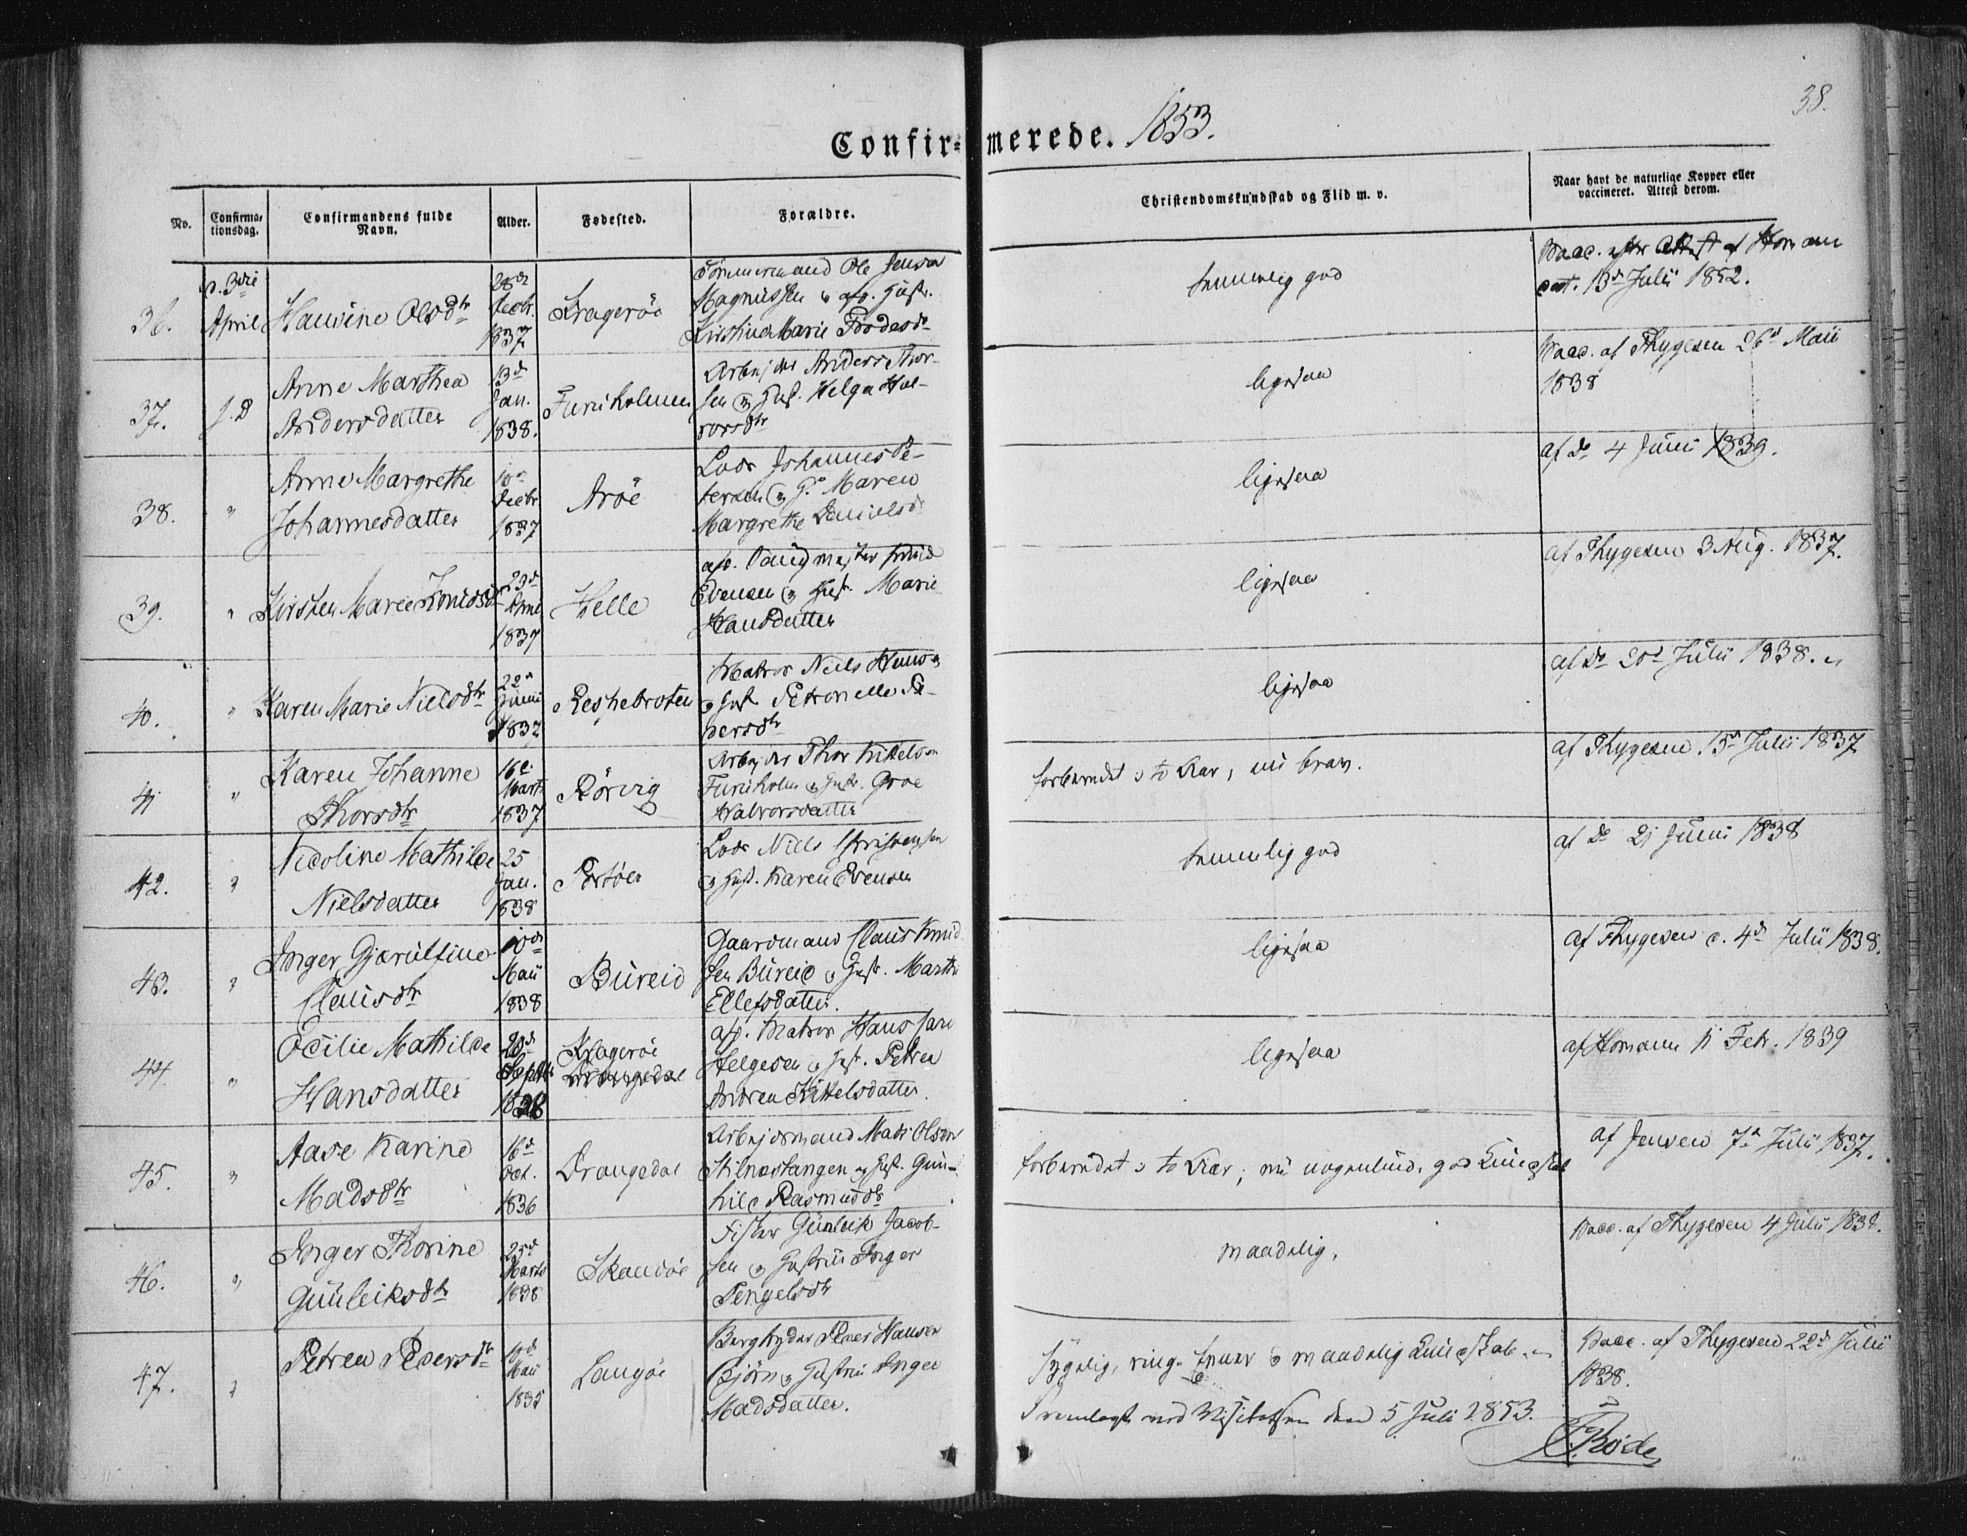 38.
Confirmerede. 1853.
No.
Confirmationsdag.
Confirmandens fulde Navn.
Alder.
Fødested.
Forældre.
Christendomskundskab og Flid m. v.
Naar havt de naturlige Kopper eller vaccineret. Attest derom.
36.
d. 3die
April
Hansine Olsdtr
28de
Decbr.
1837
Kragerøe
Tømmermand Ole Jensen
Magnussen & afg. Hustr.
Kirstine Marie
temmelig god
Vacc. efter Attest af Homann
dat. 13de Julii 1852.
37.
f. D
Anne Marthea
Andersdatter
13de
Jan.
1838.
Furuholmen
Arbejder Anders Thor-
sen & Hust. Helga Hal-
vorsdtr
ligesaa
Vacc. af Thygesen 26de Maii
1838
38.
"
Anne Margrethe
Johannesdatter
10de
Decbr
1837
Arøe
Lods Johannes Pe-
tersen & H. Maren
Margrethe Danielsdr
ligesaa
af do 4 Junii 1839.
39.
"
Kirsten Marie Knudsdr
29de
1837
Helle
afd. Knud
Evensen & Hust. Marie
Hansdatter
ligesaa
af Thygesen 3 Aug. 1837.
40.
"
Karen Marie Nielsdtr
22de
Junii
1837
Matros Niels
& Hust Petronelle Pe-
dersdtr
ligesaa
af do 20de Julii 1838.
41
"
Karen Johanne
Thorsdtr
16de
Marts
1837
Rörvig
Arbejder Thor Kittelsen
Furuholm & Hustr. Groe
Halvorsdatter
forberedet i to Aar, nu brav.
af Thygesen 13de Julii 1837
42.
"
Nicoline Mathilde
Nielsdatter
25
Jan.
1838
Portöer
Lods Niels Christensen
& Hust. Karen Evensen
temmelig god
af do 21 Junii 1838
43.
"
Inger Gjærulfine
Clausdtr
10de
Maii
1838
Büreid
Gaardmand Claus Knud-
sen Büreid & Hustr. Marthe
Ellefsdatter.
ligesaa
af Thygesen d. 4de Julii 1838.
44.
"
Ocilie Mathilde
Hansdatter
20de
Septbr
1838
Kragerøe
Drangedal
afg. Matros Hans
Helgesen & Hust. Petrea
Andrea Kittelsdatter.
ligesaa
af Homann 11 Febr. 1839
45.
"
Aase Karine
Madsdtr
16de
Oct.
1836
Drangedal
Arbejdsmand Mads Olsen
Stilnæstangen og Hust. Gun-
hild Rasmusdtr
forberedet i to Aar, nu nogenlund. god Kundskab
af Jensen 7de Julii 1837.
46.
"
Inger Thorine
Gunleiksdtr
25de
Marts
1838
Skaadøe
Fisker Gunleik Jacob-
sen & Hustru Inger
Tengelsdtr
maadelig.
Vacc. af Thygesen 4 Julii 1838.
47.
"
Petrea Pedersdtr
Maii
1835
Langøe
Peder Hansen
Björn & Hustru Inger
Madsdatter.
sygelig, ring. Evner & maadelig Kundskab.
Vacc. af Thygesen 22de Julii
1838.
Fremlagt ved Visitatsen den 5 Juli 1853.